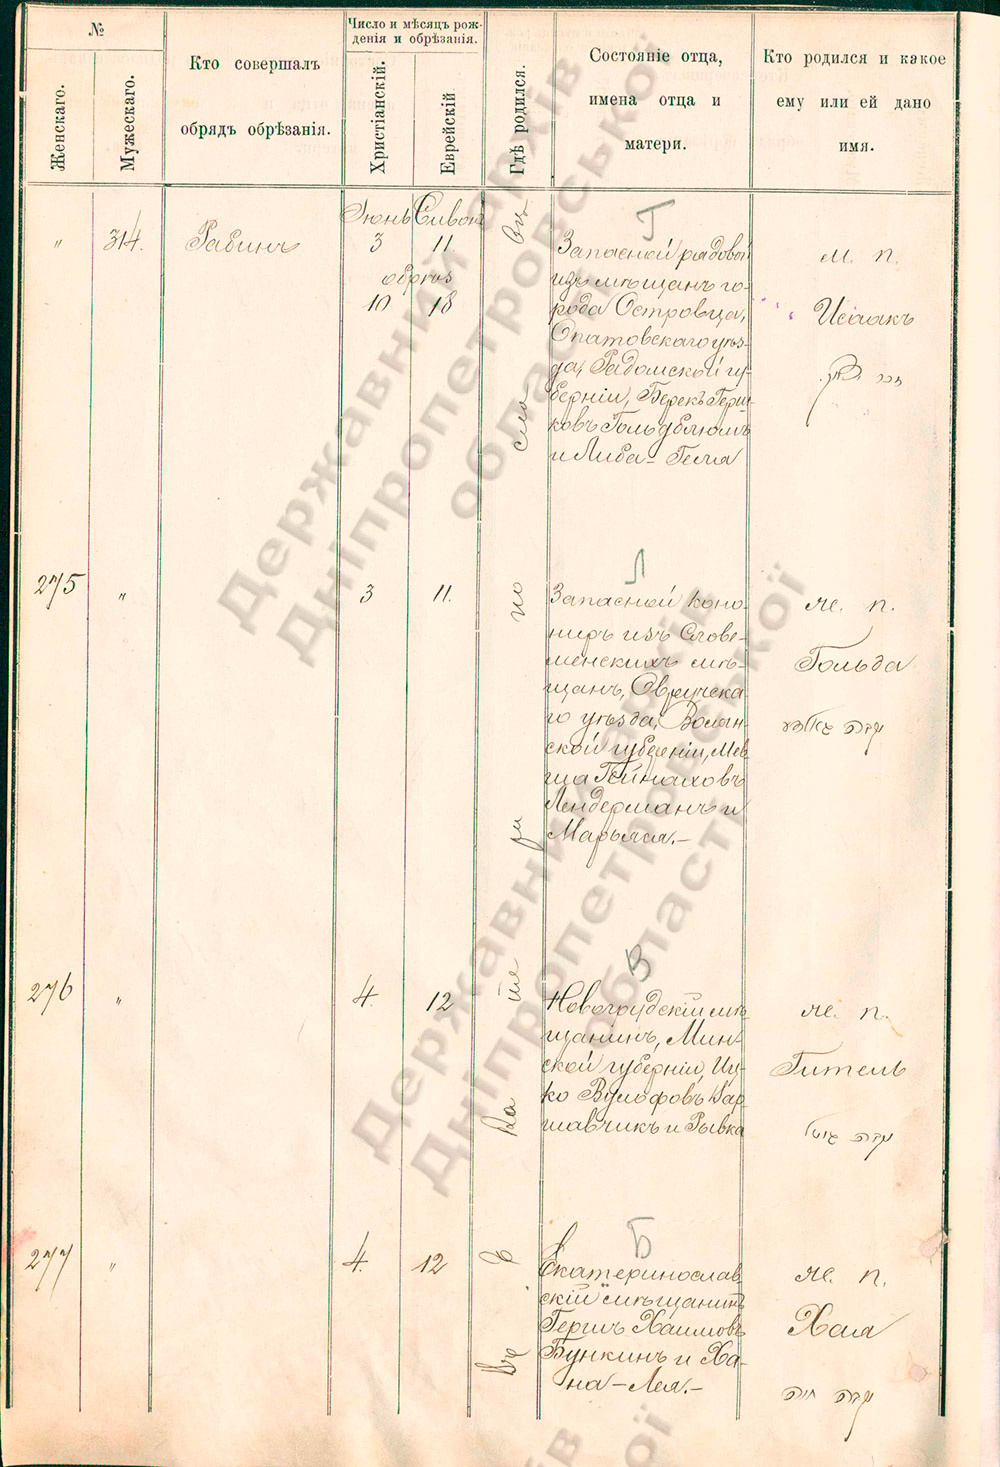 №
Женскаго.
Мужескаго.
Кто совершалъ
обрядъ обрѣзанія.
Число и мѣсяцъ рож-
денія и обрѣзанія.
Христіанскій.
Еврейскій
Гдѣ родился.
Состояніе отца,
имена отца и
матери.
Кто родился и какое
ему или ей дано
имя.
Въ г. Екатеринославѣ
Г
" 314. Рабинъ
Іюнь Сивонъ
3 11
обрѣз
10 18
Запасной рядовой
изъ мѣщанъ го-
рода Островца,
Опатовскаго уѣз-
да, Радомской гу-
берніи, Берекъ Герш-
ковъ Гольдблюмъ
и Либа-Гема
м. п.
Исаакъ
זכר יצחק
Л
275 " 3 11.
Запасной кано-
ниръ изъ Слове-
ченскихъ мѣ-
щанъ, Овручска-
го уѣзда, Волын-
ской губерніи, Мев-
ша Гейнаховъ
Лендерманъ и
Марьяся.-
же. п.
Гольда
נקבה גאלדע
В
276 " 4. 12
Новогрудскій мѣ-
щанинъ, Мин-
ской губерніи, Иц-
ко Вульфовъ Вар-
шавчикъ и Рывка
же. п.
Гитель
נקבה גיטל
Б
277 " 4. 12
Екатеринослав-
скій мѣщанинъ
Гершъ Хаимовъ
Бункинъ и Ха-
на-Лея.-
же. п.
Хая
נקבה חיה
Державний архів
Дніпропетровської
області
Державний архів
Дніпропетровської
області